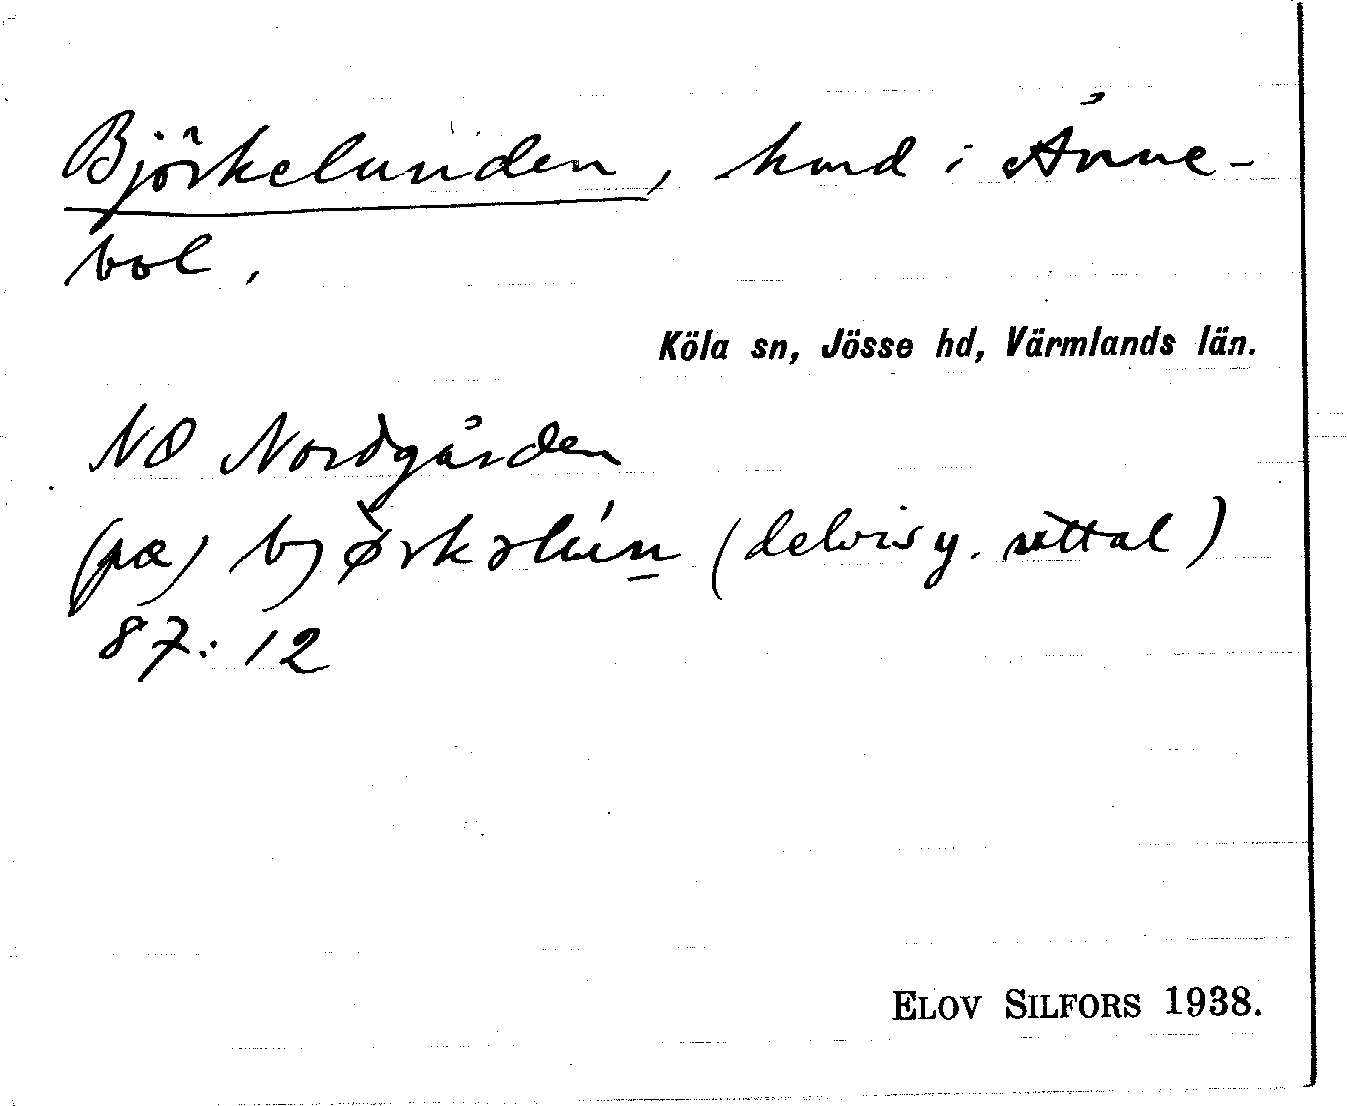 Björkelunden, hmd i Ånne-
bol.
Köla sn, Jösse hd, Värmlands län.
NO Nordgården
(pœ) bjørkəlún (delvis y. uttal)
87:12
ELOV SILFORS 1938.